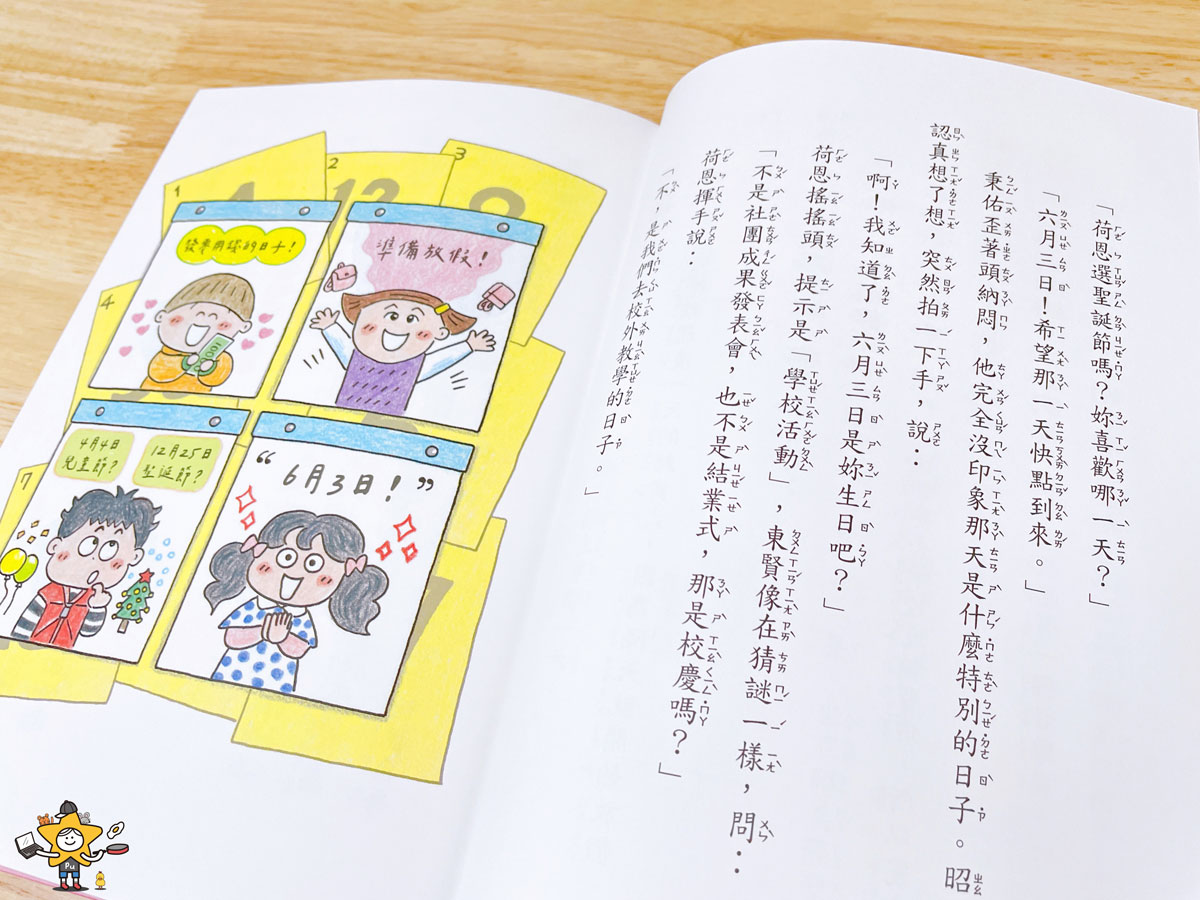 「荷恩選聖誕節嗎？妳喜歡哪一天？」
「六月三日！希望那一天快點到來。」
秉佑歪著頭納悶，他完全沒印象那天是什麼特別的日子。昭
認真想了想，突然拍一下手，說：
「啊！我知道了，六月三日是妳生日吧？」
荷恩搖搖頭，提示是「學校活動」，東賢像在猜謎一樣，問：
「不是社團成果發表會，也不是結業式，那是校慶嗎？」
荷恩揮手說：
「不，是我們去校外教學的日子。」
1
2
3
發零用錢的日子！
準備放假！
4
4月4日
兒童節？
12月25日
聖誕節？
“6月3日！”
7
Pu